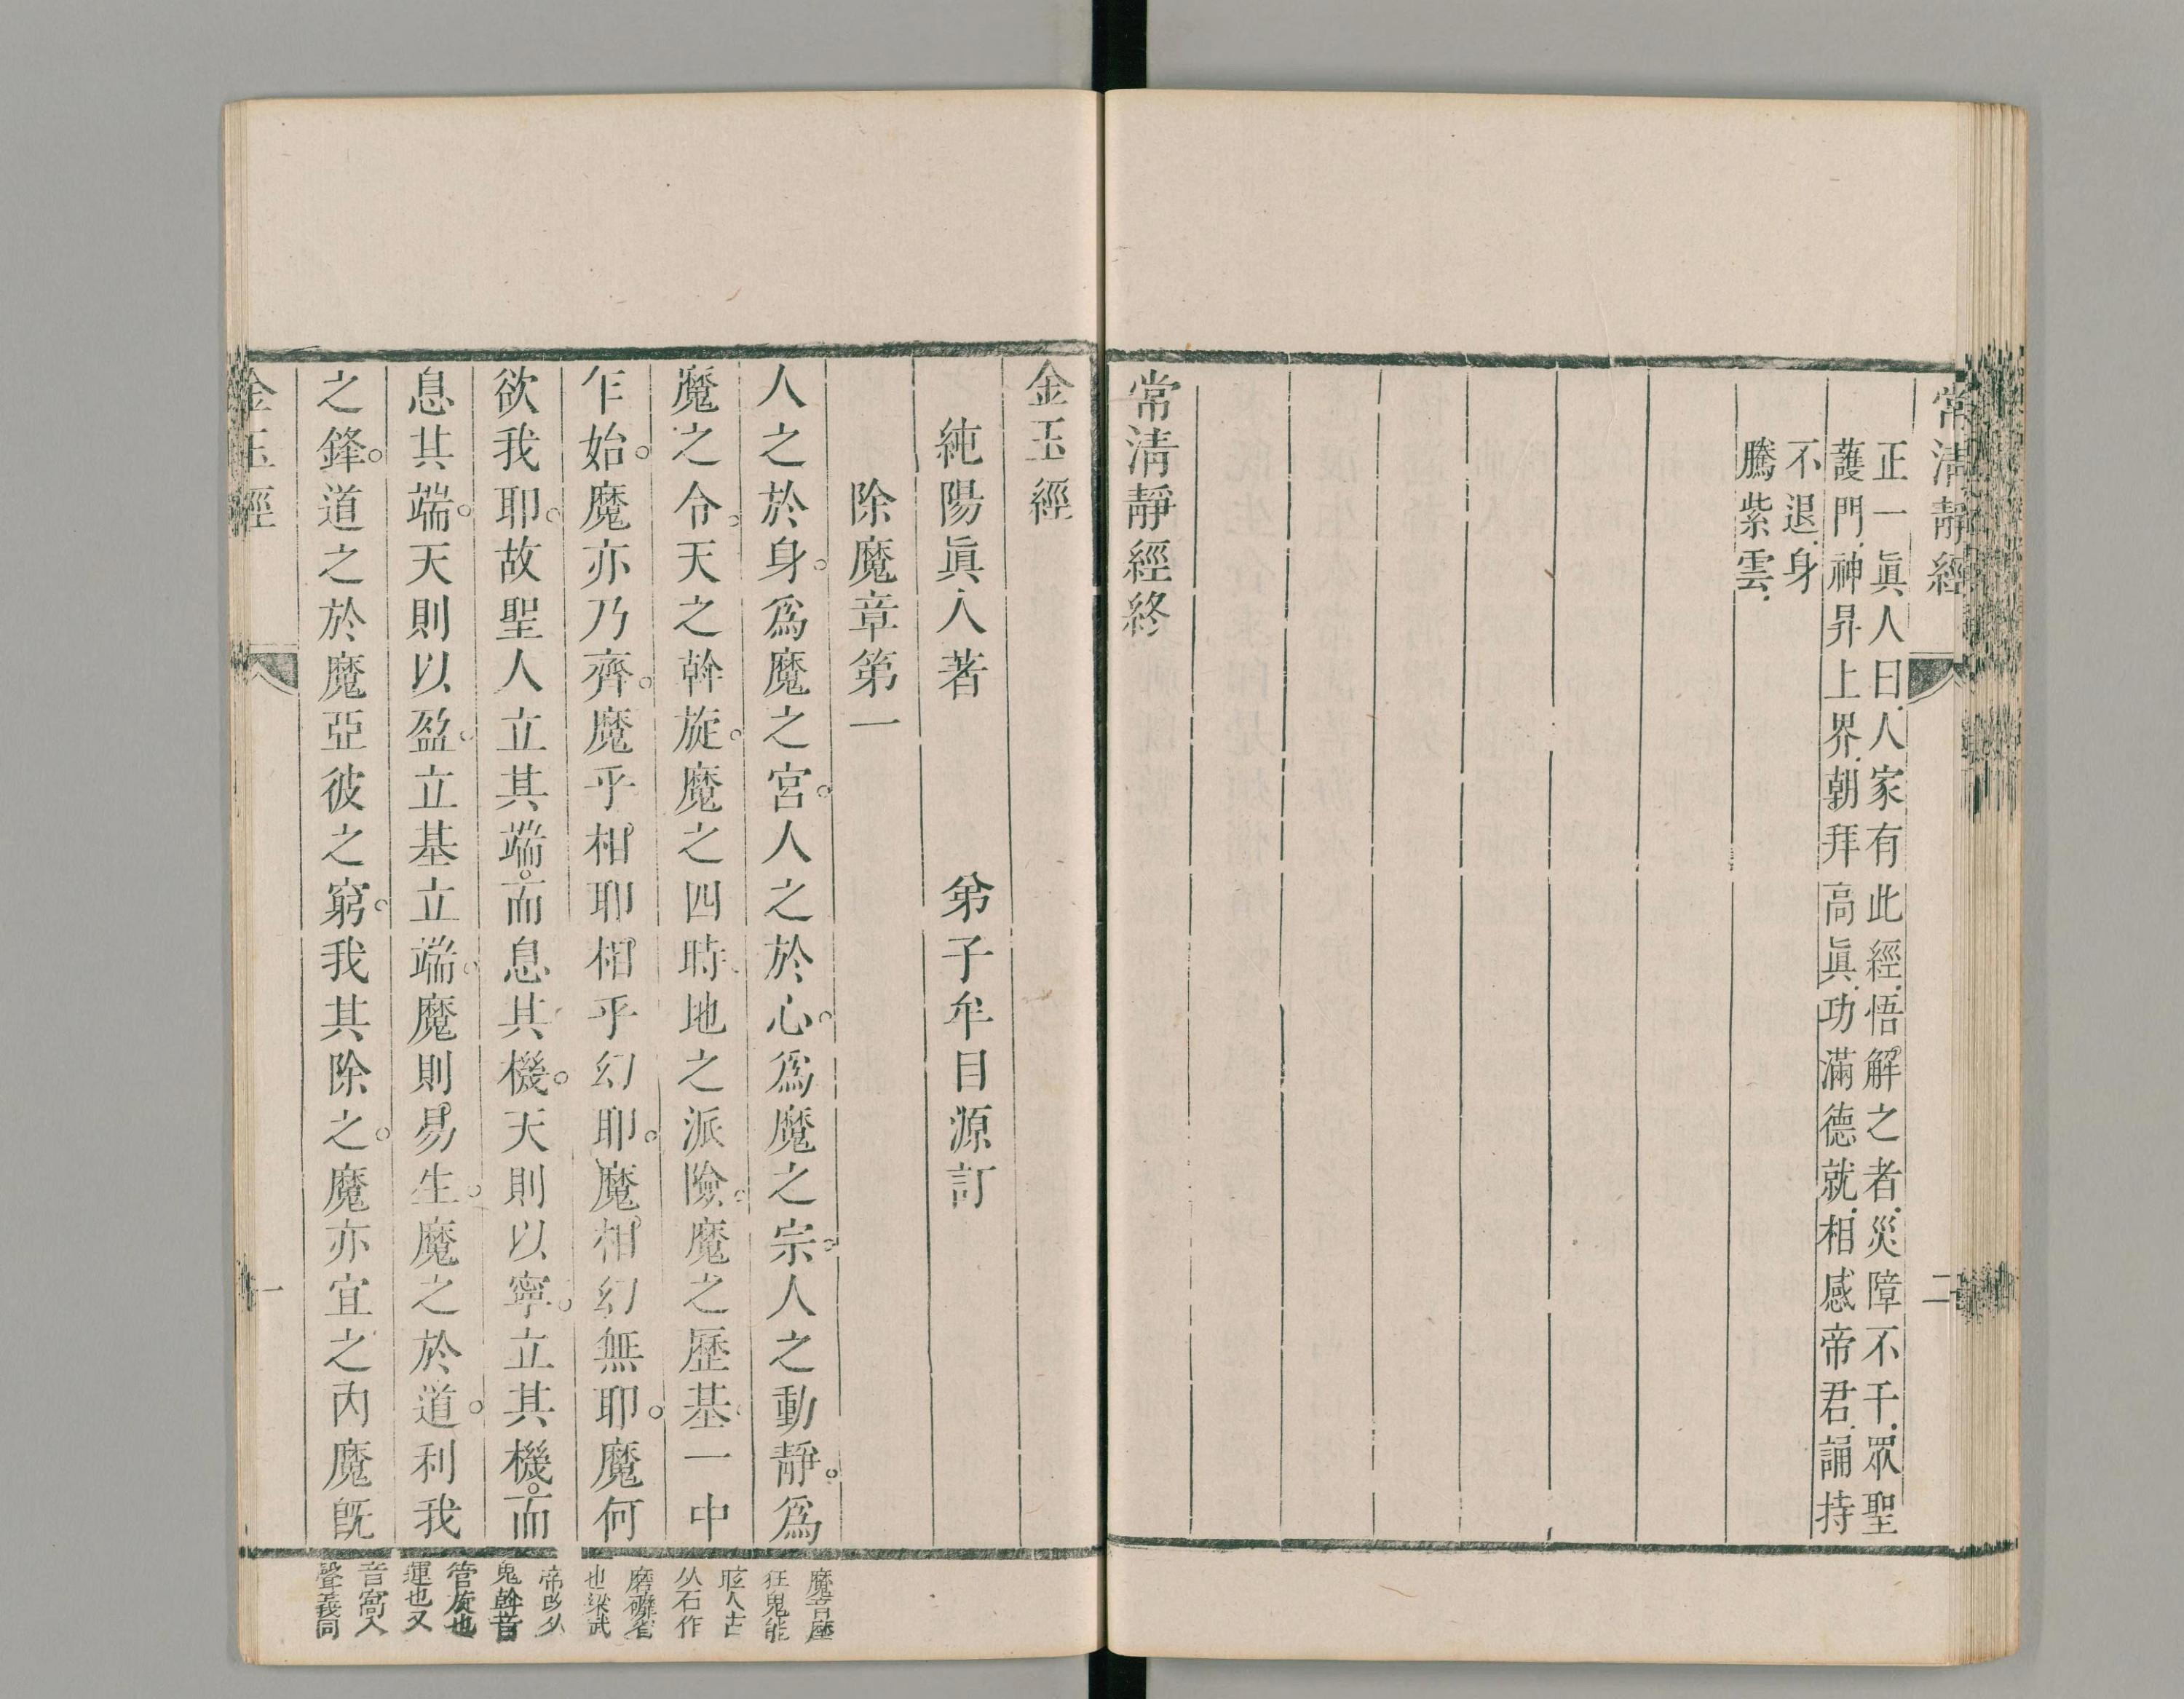 常清靜經
二
正一眞人曰人家有此經悟解之者災障不干眾聖
護門神昇上界朝拜高眞功滿德就相感帝君誦持
不退身
騰紫雲
常清靜經終
金玉經
純陽眞人著 弟子牟目源訂
除魔章第一
人之於身。爲魔之宮。人之於心。爲魔之宗。人之動靜。爲
魔之令。天之斡旋。魔之四時。地之派險。魔之歷基。一中
乍始。魔亦乃齊。魔乎相耶。相乎幻耶。魔相幻無耶。魔何
欲我耶。故聖人立其端。而息其機。天則以寧。立其機。而
息其端。天則以盈。立基立端。魔則易生。魔之於道。利我
之鋒。道之於魔。亞彼之窮。我其除之。魔亦宜之。內魔旣
金玉經
一
魔音麼
狂鬼能
眩人古
从石作
磨礳省
也梁武
帝改从
鬼斡音
管旋也
運也又
音窩入
聲義同